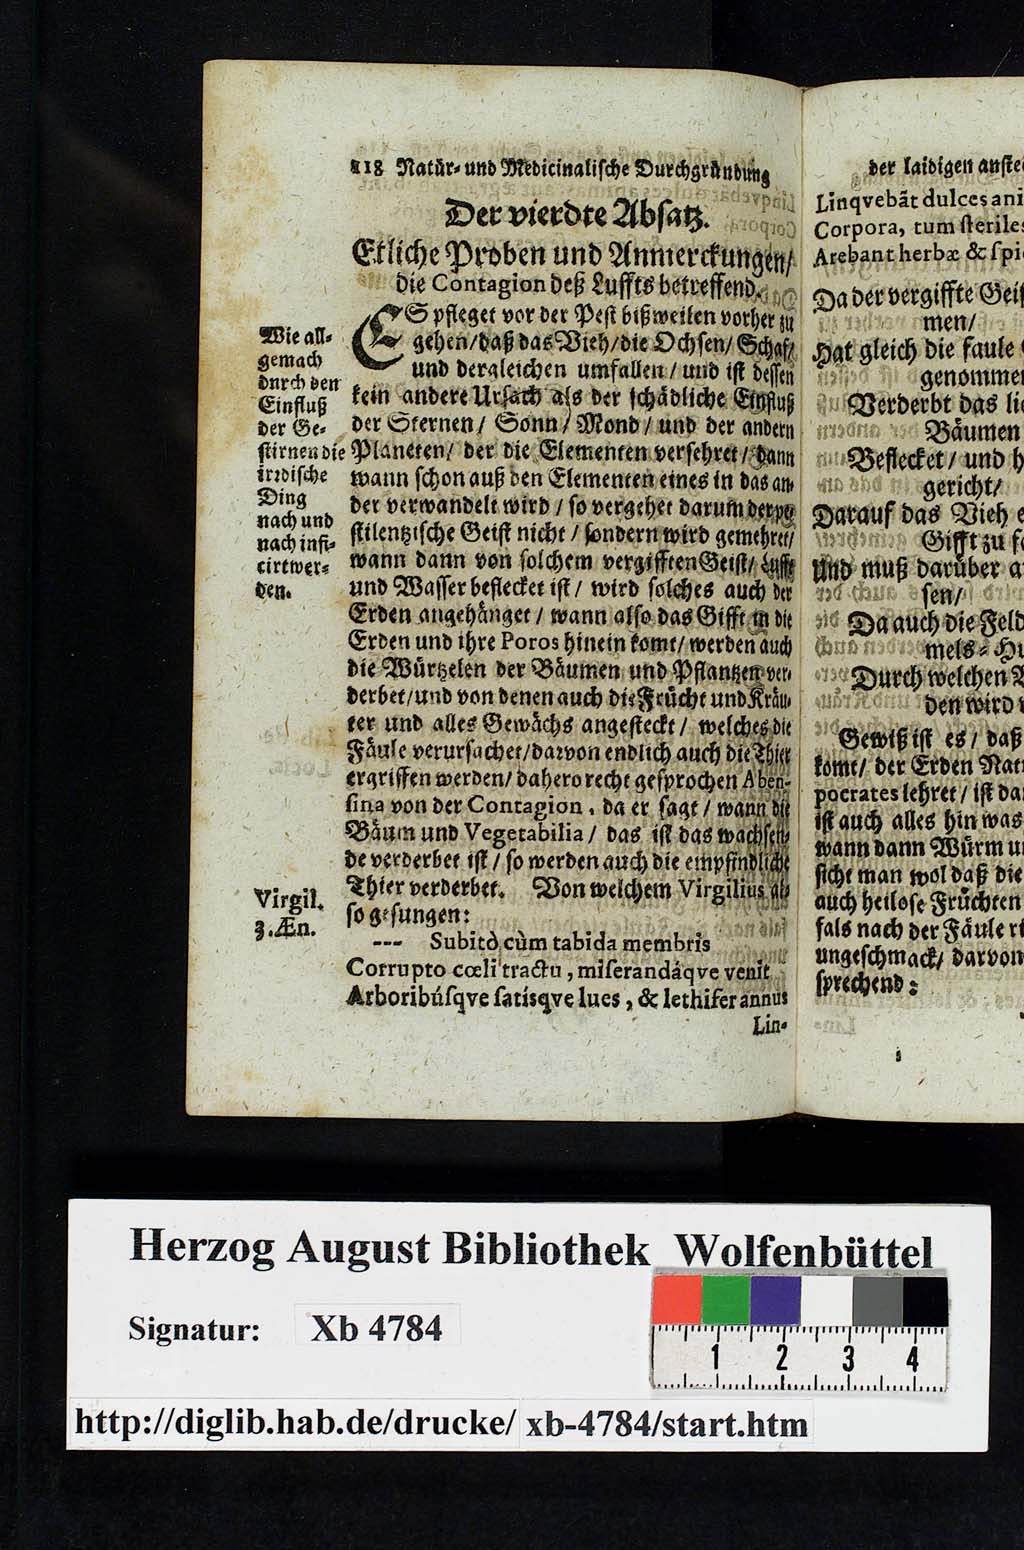 118 Natür- und Medicinalische Durchgründung
Der vierdte Absatz.
Etliche Proben und Anmerckungen/
die Contagion deß Luffts betreffend.
ES pfleget vor der Pest bißweilen vorher zu
gehen/daß das Vieh/die Ochsen/ Schaf/
und dergleichen umfallen/ und ist dessen
kein andere Ursach als der schädliche Einfluß
der Sternen/ Sonn/ Mond/ und der andern
Planeten/ der die Elementen versehret/ dann
wann schon auß den Elementen eines in das an-
der verwandelt wird/ so vergehet darum der pe-
stilentzische Geist nicht/ sondern wird gemehret/
wann dann von solchem vergifften Geist/ Lufft
und Wasser beflecket ist/ wird solches auch der
Erden angehänget/ wann also das Gifft in die
Erden und ihre Poros hinein komt/ werden auch
die Würtzelen der Bäumen und Pflantzen ver-
derbet/und von denen auch die Frücht und Kräu-
ter und alles Gewächs angesteckt/ welches die
Fäule verursachet/darvon endlich auch die Thier
ergriffen werden/ dahero recht gesprochen Aben-
sina von der Contagion, da er sagt/ wann die
Bäum und Vegetabilia/ das ist das wachsen-
de verderbet ist/ so werden auch die empfindliche
Thier verderbet. Von welchem Virgilius al-
so gesungen:
--- Subitò cùm tabida membris
Corrupto cœli tractu, miserandáqve venit
Arboribúsqve satísqve lues, & lethifer annus
Lin-
Wie all-
gemach
durch den
Einfluß
der Ge-
stirnen die
irrdische
Ding
nach und
nach infi-
cirt wer-
den.
Virgil.
3. Æn.
der laidigen anste
Linqvebãt dulces ani
Corpora, tum steriles
Arebant herbæ & spi
Da der vergiffte Geis
men/
Hat gleich die faule
genommen
Verderbt das lie
Bäumen
Beflecket/ und h
gericht/
Darauf das Vieh
Gifft zu
Und muß darüber a
sen/
Da auch die Feld
mels-Hu
Durch welchen
den wird
Gewiß ist es/ daß
komt/ der Erden Natu
pocrates lehret/ ist da
ist auch alles hin was
wann dann Würm u
sicht man wol daß die
auch heilose Früchten
fals nach der Fäule ri
ungeschmack/ darvon
sprechend:
Herzog August Bibliothek Wolfenbüttel
Signatur: Xb 4784
1 2 3 4
http://diglib.hab.de/drucke/ xb-4784/start.htm